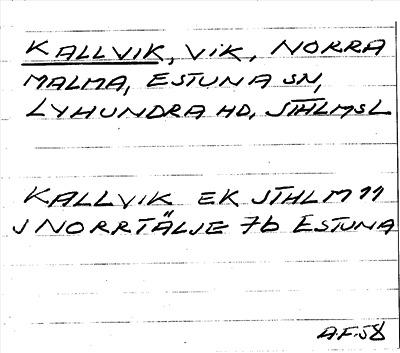 KALLVIK, VIK, NORRA
MALMA, ESTUNA SN,
LYHUNDRA HD, STHLMSL
KALLVIK EK STHLM 99
J NORRTÄLJE 7b ESTUNA
A.F.58